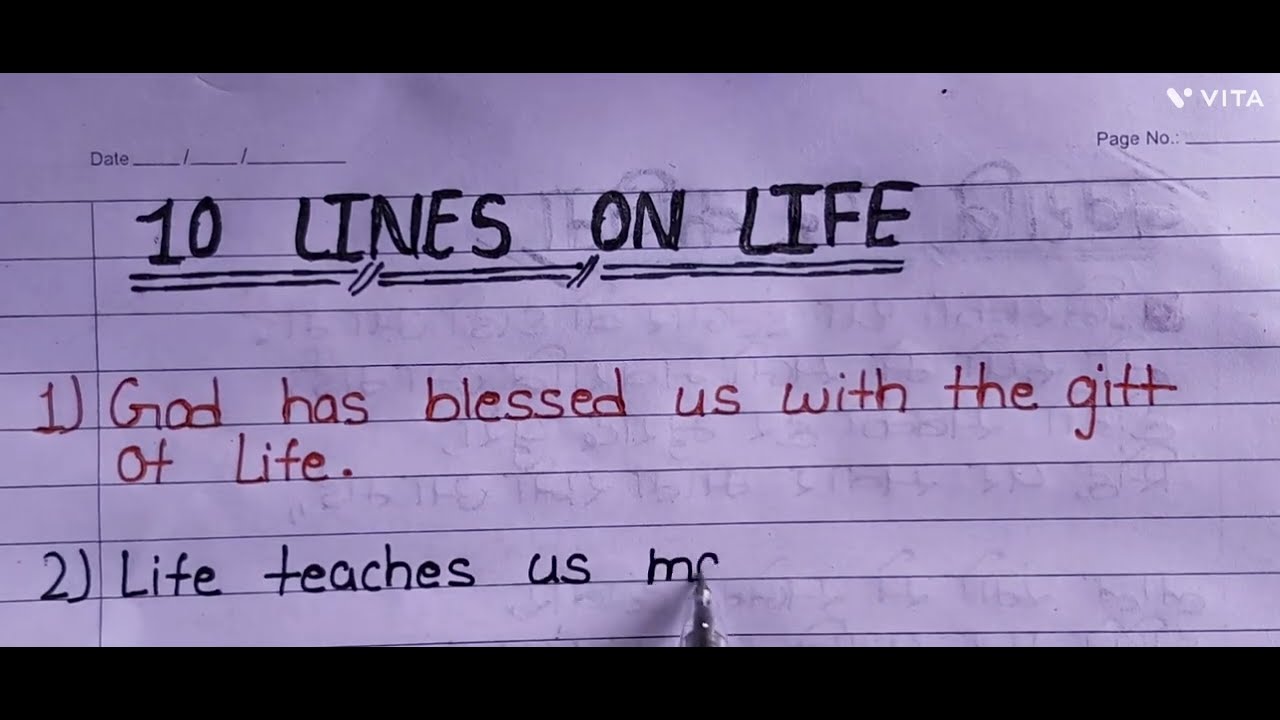 VITA
Date ___/___/______
Page No.: ______
10 LINES ON LIFE
1) God has blessed us with the gift
of Life.
2) Life teaches us